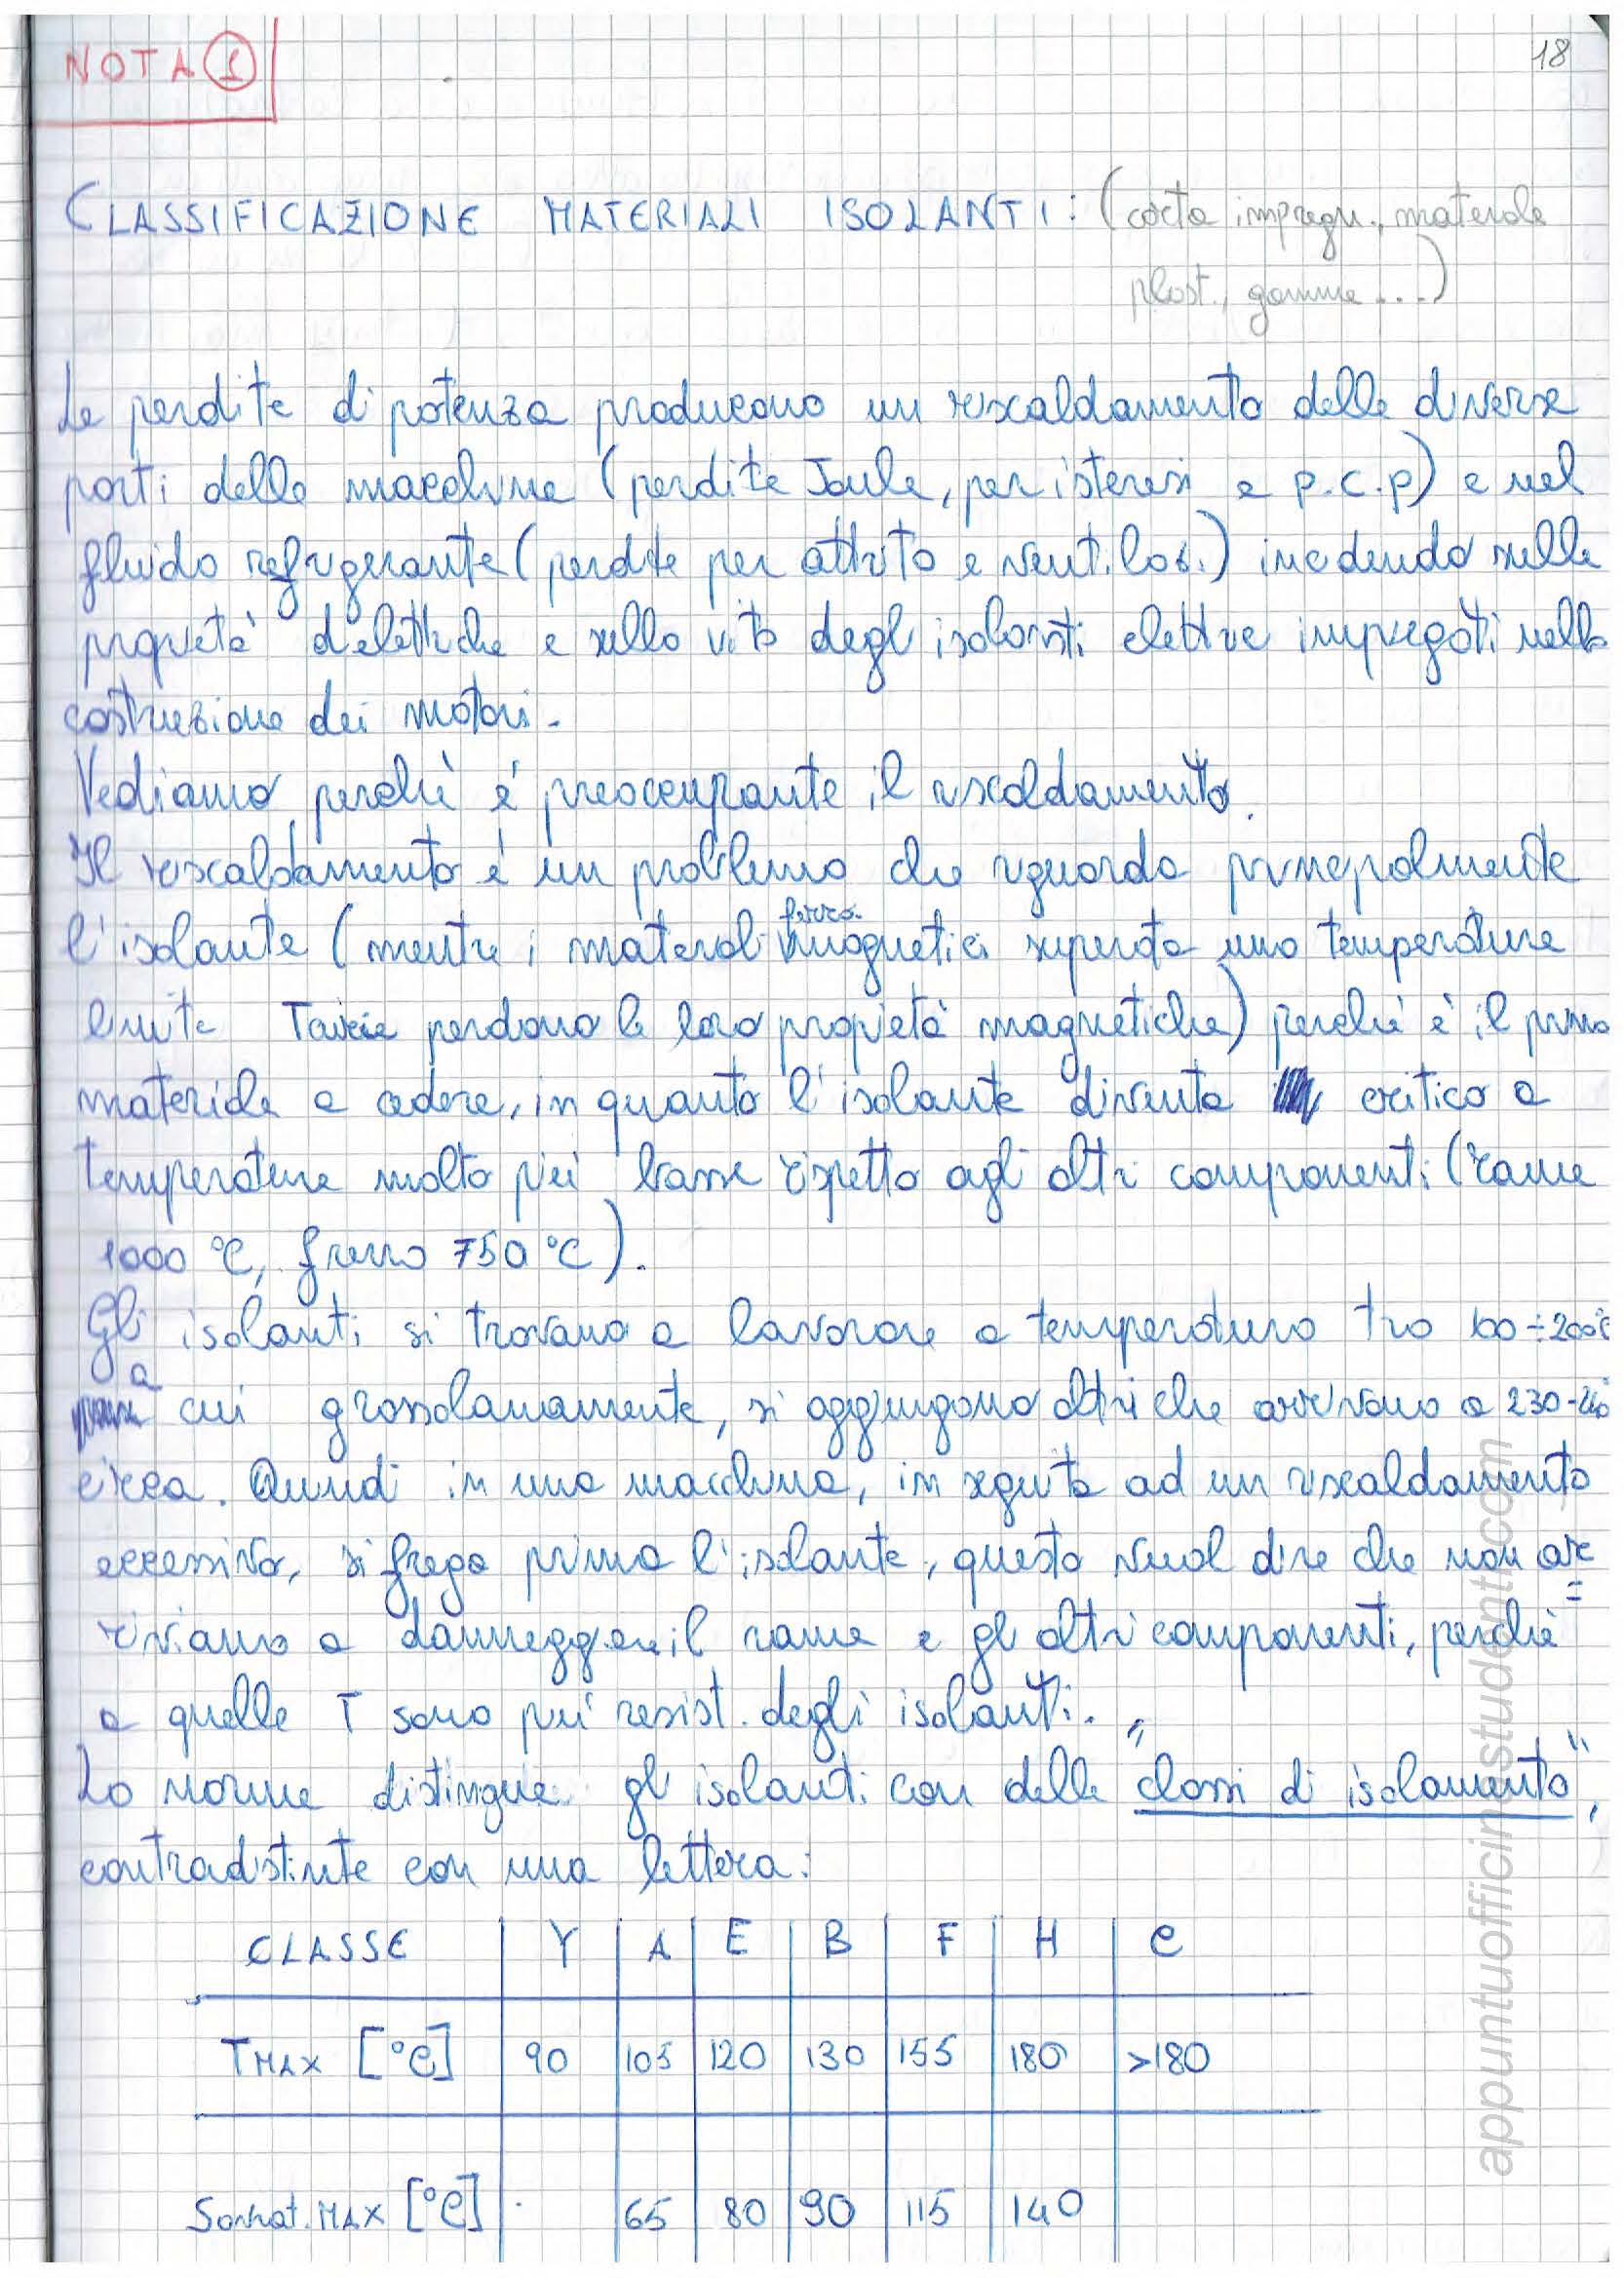 NOTA 1
18
CLASSIFICAZIONE MATERIALI ISOLANTI: (carta impregn., materiale
plast., gomma ...)
Le perdite di potenza producono un riscaldamento delle diverse
parti della macchina (perdite Joule, per isteresi e p.c.p) e nel
fluido refrigerante (perdite per attrito e ventilaz.) incidendo sulle
proprietà dielettriche e sulla vita degli isolanti elettrici impiegati nella
costruzione dei motori.
Vediamo perchè è preoccupante il riscaldamento.
Il riscaldamento è un problema che riguarda principalmente
l'isolante (mentre i materiali ferromagnetici superata una temperatura
limite Tcurie perdono le loro proprietà magnetiche) perchè è il primo
materiale a cedere, in quanto l'isolante diventa critico a
temperature molto più basse rispetto agli altri componenti (rame
1000 °C, ferro 750 °C).
Gli isolanti si trovano a lavorare a temperatura tra 100÷200°C
a cui grossolanamente, si aggiungono altri che arrivano a 230-240
circa. Quindi in una macchina, in seguito ad un riscaldamento
eccessivo, si frega prima l'isolante, questo vuol dire che non ar=
riviamo a danneggiare il rame e gli altri componenti, perchè
a quelle T sono più resist. degli isolanti.
La norma distingue gli isolanti con delle "classi di isolamento",
contradistinte con una lettera:
CLASSE Y A E B F H C
TMAX [°C] 90 105 120 130 155 180 >180
Sovrat. MAX [°C] 65 80 90 115 140
appuntuofficinastudenti.com